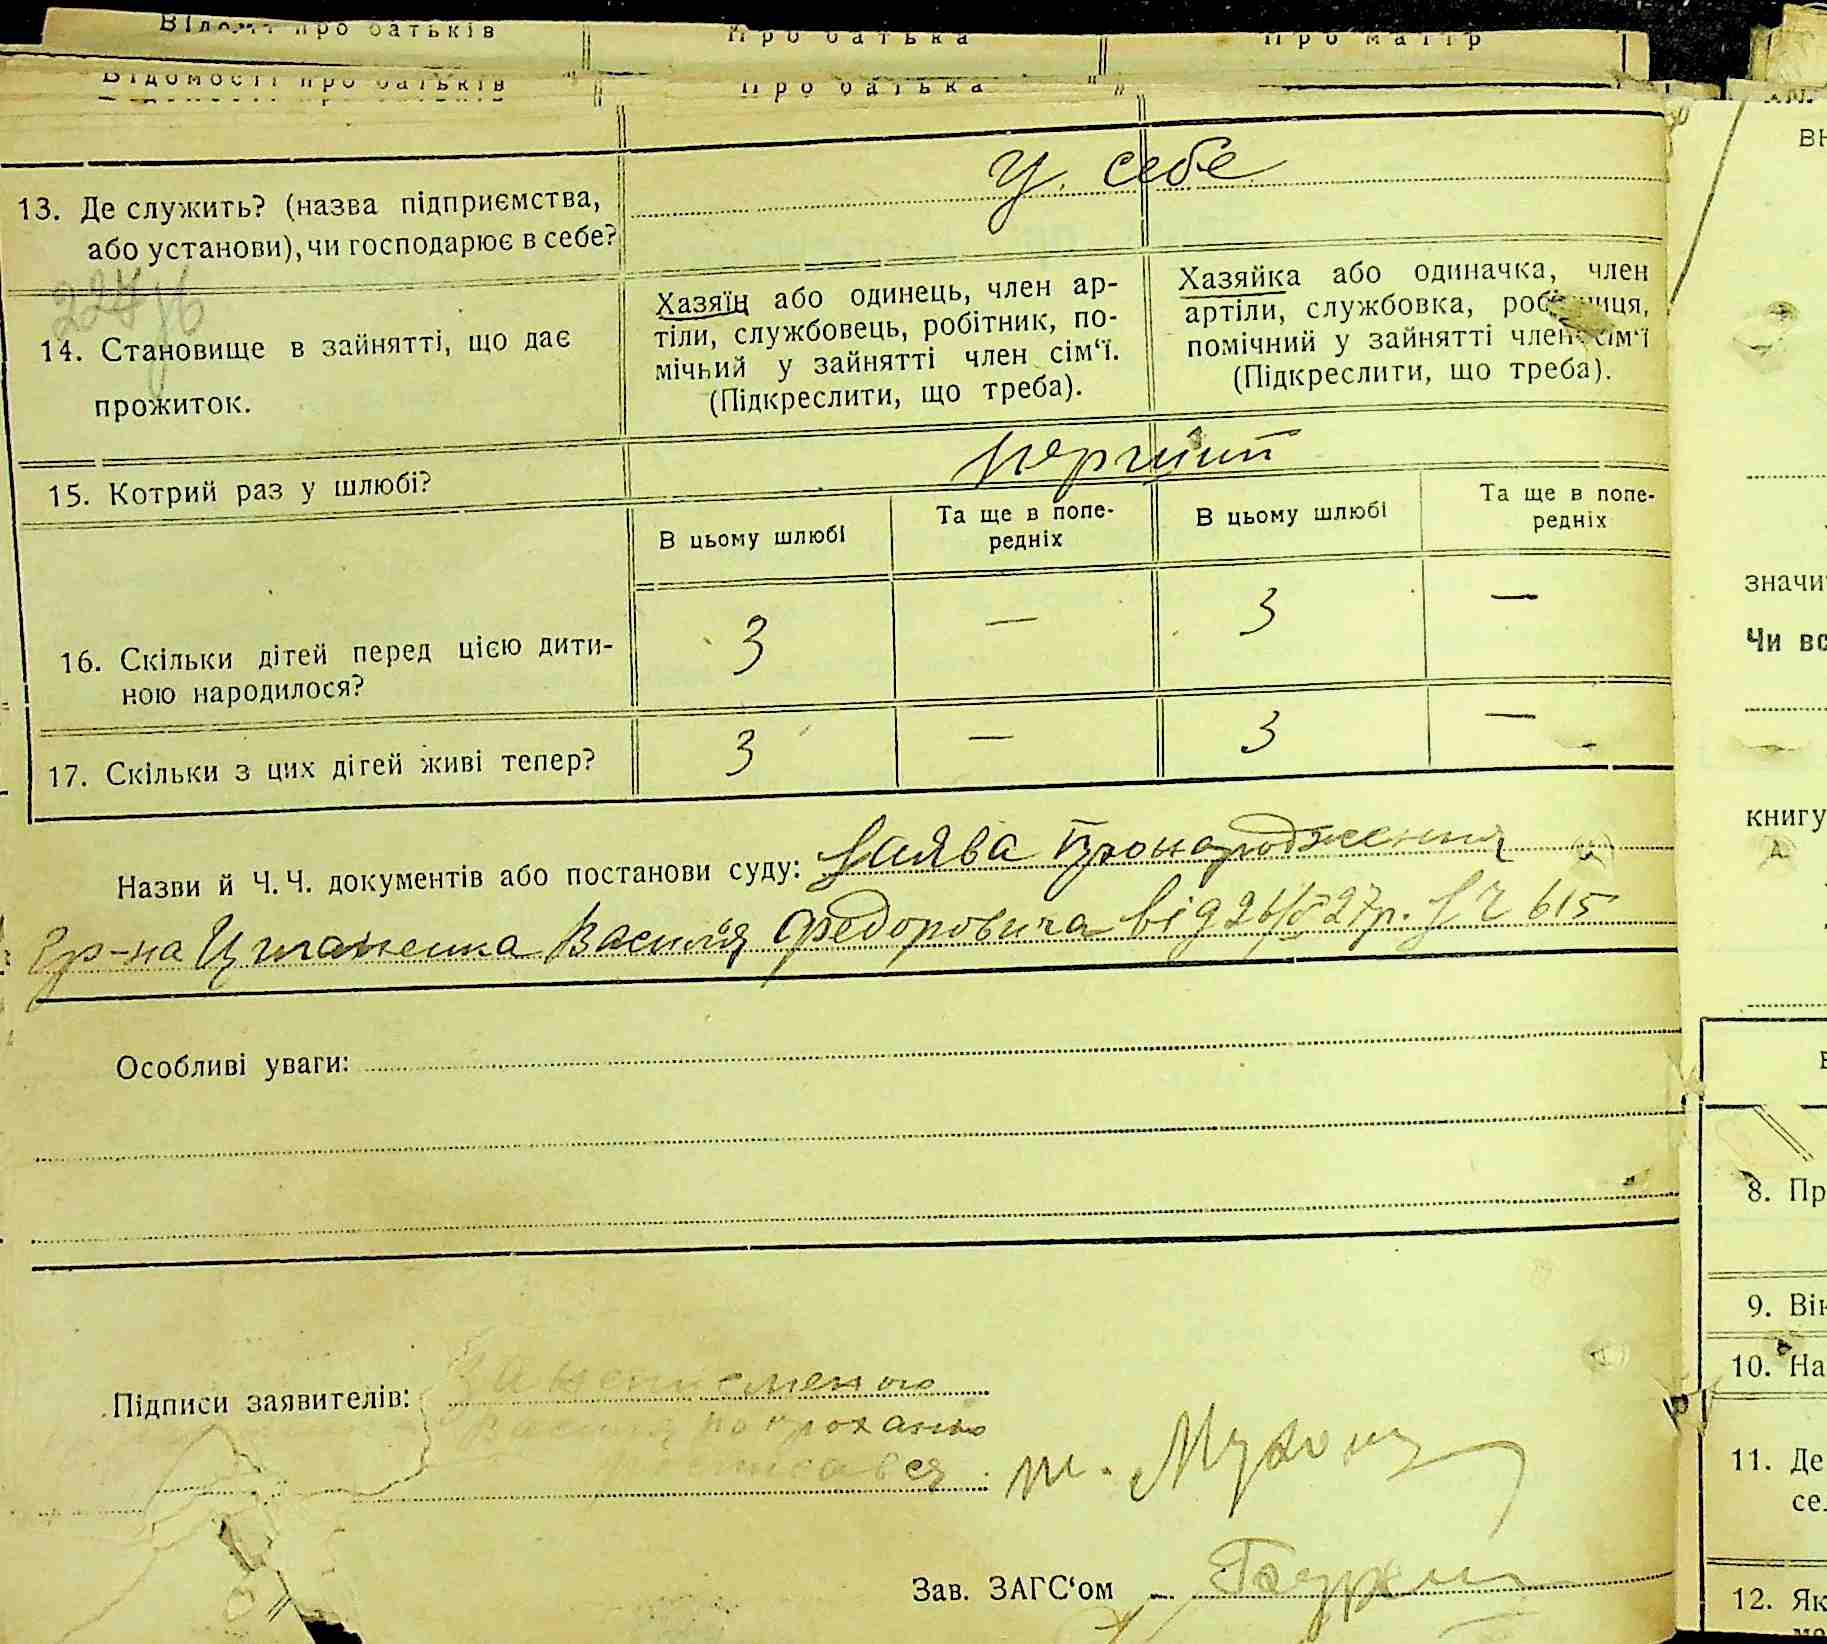 Відомості про батьків Про батька Про матір
Відомості про батьків Про батька
13. Де служить? (назва підприємства,
або установи), чи господарює в себе?
У себе
14. Становище в зайнятті, що дає
прожиток.
Хазяїн або одинець, член ар-
тіли, службовець, робітник, по-
мічний у зайнятті член сім‘ї.
(Підкреслити, що треба).
Хазяйка або одиначка, член
артіли, службовка, робітниця,
помічний у зайнятті член сім‘ї
(Підкреслити, що треба).
15. Котрий раз у шлюбі?
перший
В цьому шлюбі
Та ще в попе-
редніх
В цьому шлюбі
Та ще в попе-
редніх
16. Скільки дітей перед цією дити-
ною народилося?
3 — 3 —
17. Скільки з цих дітей живі тепер?
3 — 3 —
Назви й Ч.Ч. документів або постанови суду: заява про народження
гр-на Циганенка Василя Федоровича від 27р. 615
Особливі уваги:
Підписи заявителів:
Василя по проханню
росписався
Зав. ЗАГС‘ом
значи
Чи вс
книгу
8. Пр
9. Вік
10. На
11. Де
се
12. Як